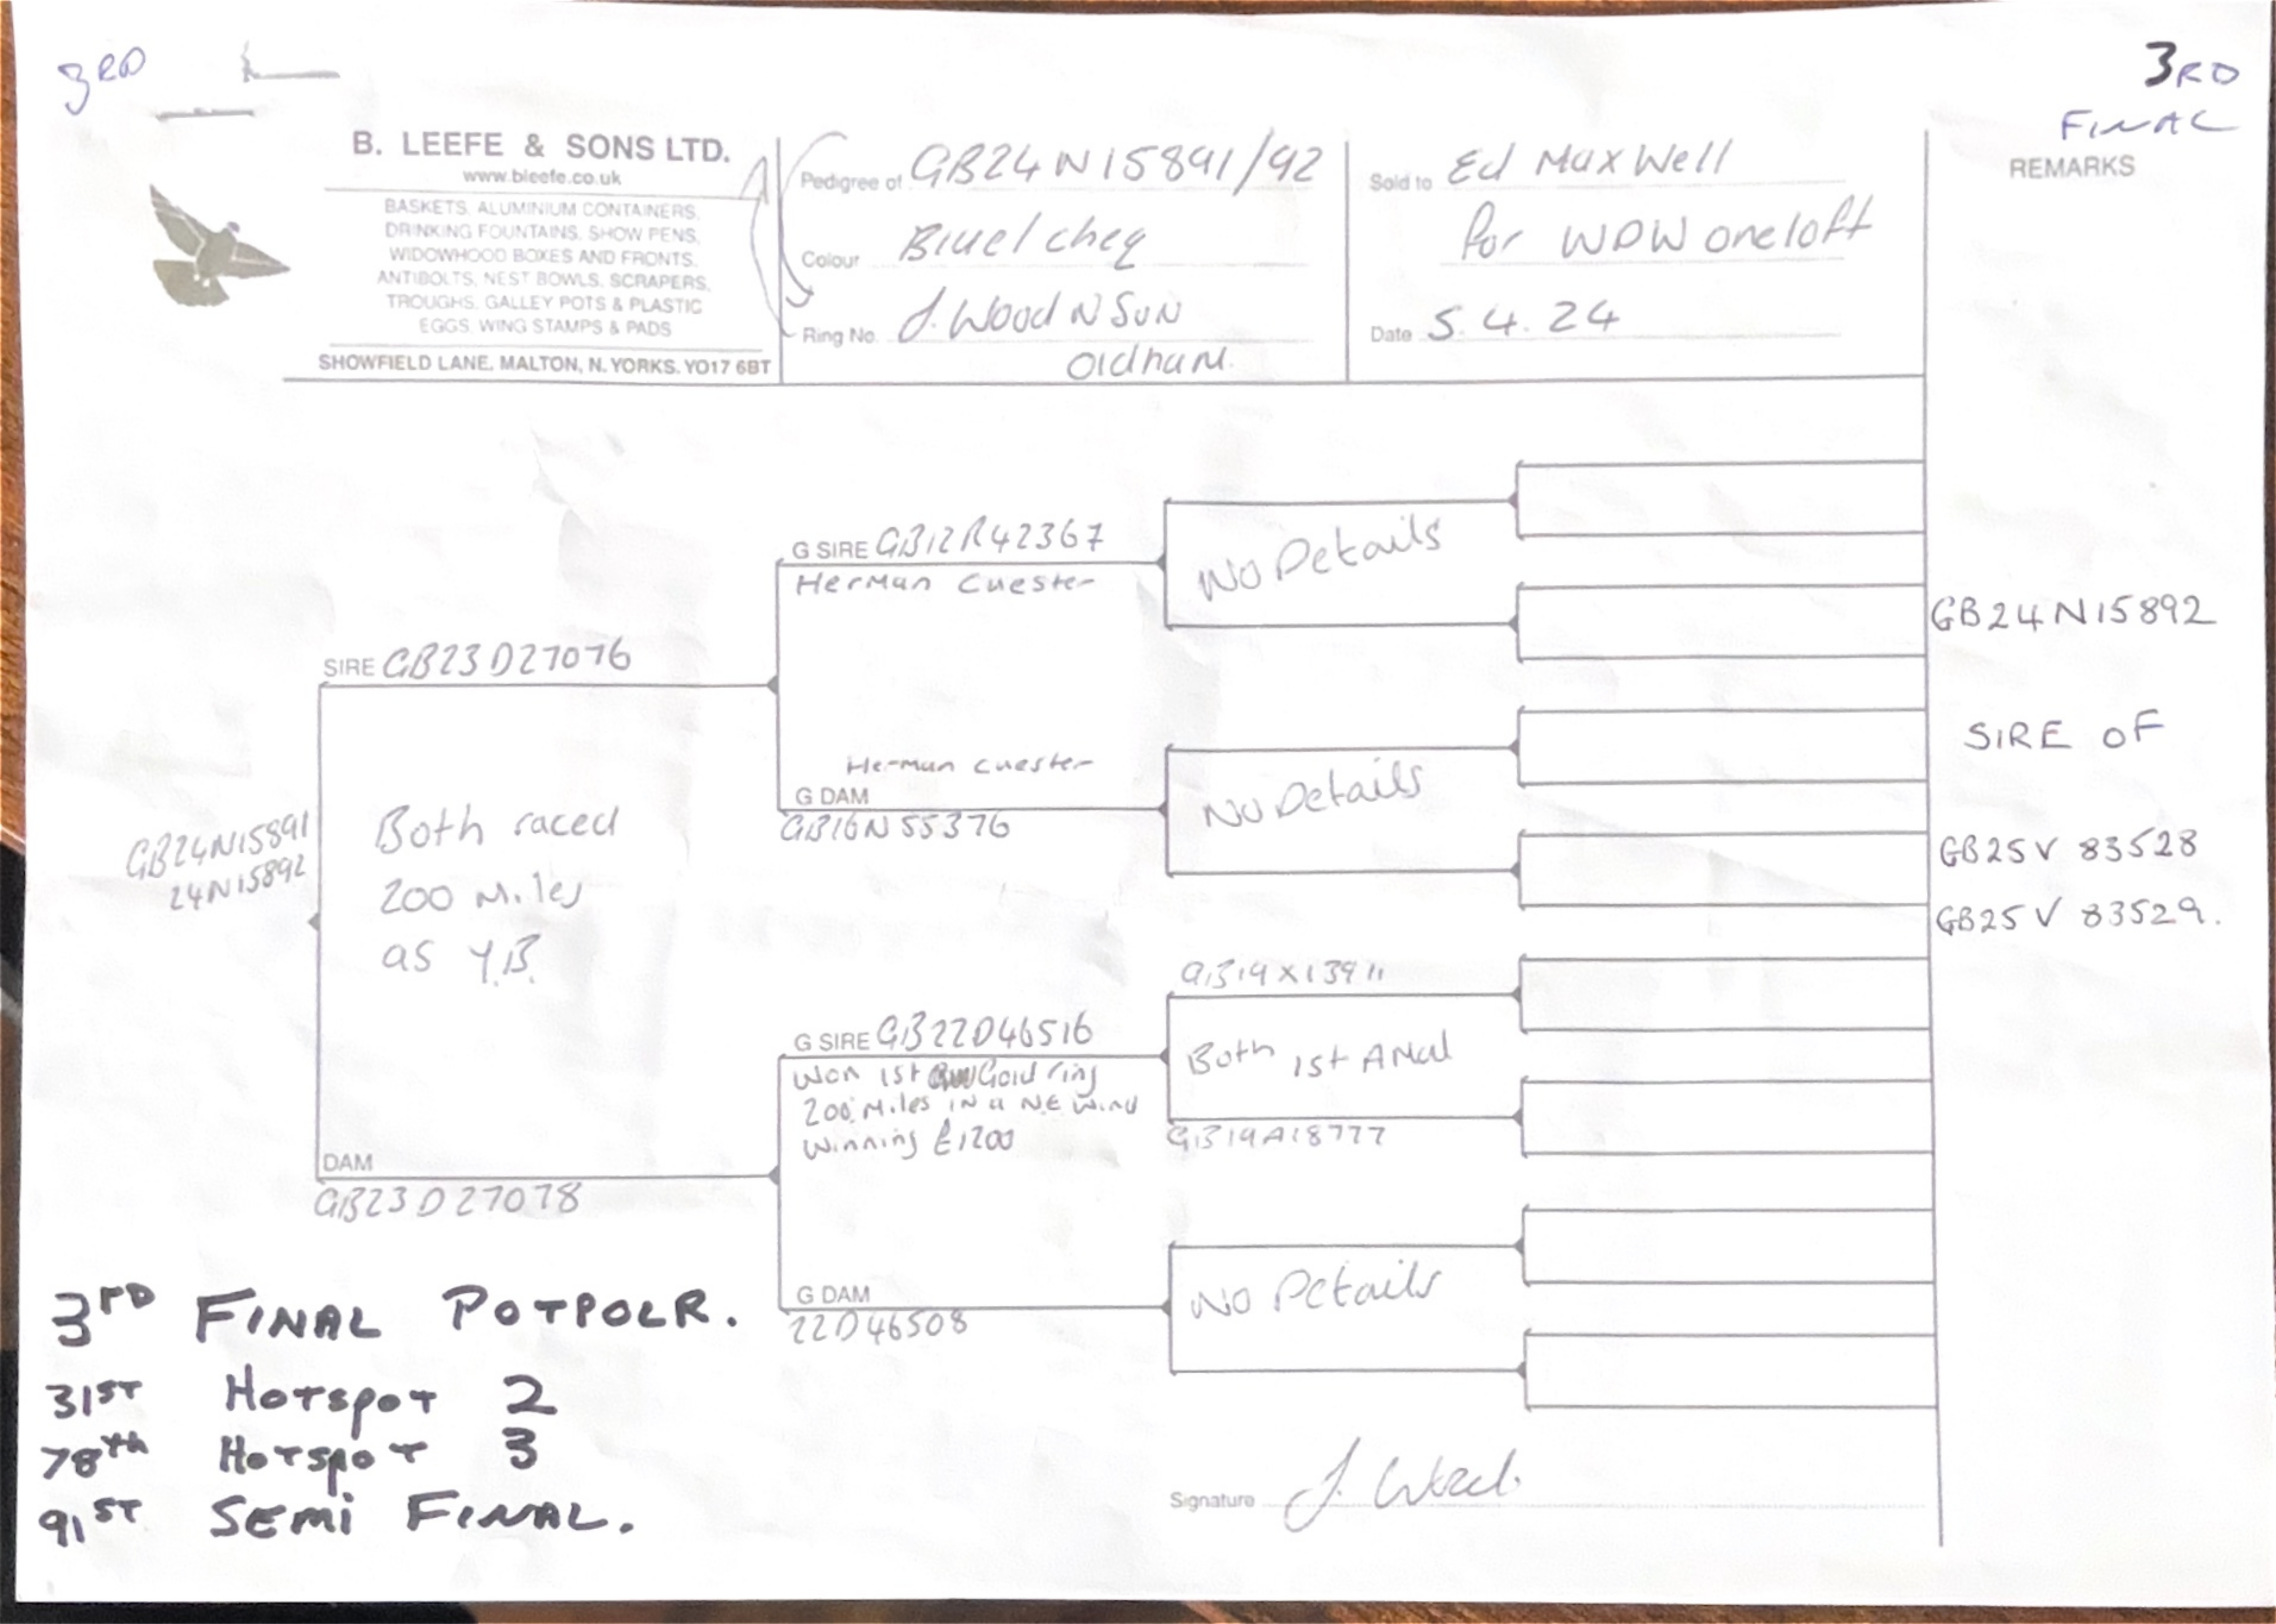 3RD
3RD
FINAL
B. LEEFE & SONS LTD.
www.bleefe.co.uk
BASKETS, ALUMINIUM CONTAINERS,
DRINKING FOUNTAINS, SHOW PENS,
WIDOWHOOD BOXES AND FRONTS,
ANTIBOLTS, NEST BOWLS, SCRAPERS,
TROUGHS, GALLEY POTS & PLASTIC
EGGS, WING STAMPS & PADS
SHOWFIELD LANE, MALTON, N. YORKS. YO17 6BT
Pedigree of GB24N15891/92
Colour Bluel cheq
Ring No. J. Wood N SuN
Oldham.
Sold to Ed Maxwell
for WDW oneloft
Date 5.4.24
REMARKS
G SIRE GB12R42367
Herman Cuester
No Details
SIRE GB23D27076
Herman Cuester
G DAM
GB16N55376
No Details
GB24N15891
24N15892
Both raced
200 Miles
as Y.B.
DAM
GB23D27078
G SIRE GB22D46516
Won 1st Gold ring
200 Miles IN a NE Wind
Winning £1200
GB19X13911
Both 1st
GB19A18777
G DAM
22D46508
No Details
GB24N15892
SIRE OF
GB25V 83528
GB25V 83529.
3RD FINAL POTPOLR.
31ST HOTSPOT 2
78th HOTSPOT 3
91ST SEMI FINAL.
Signature J. Wood